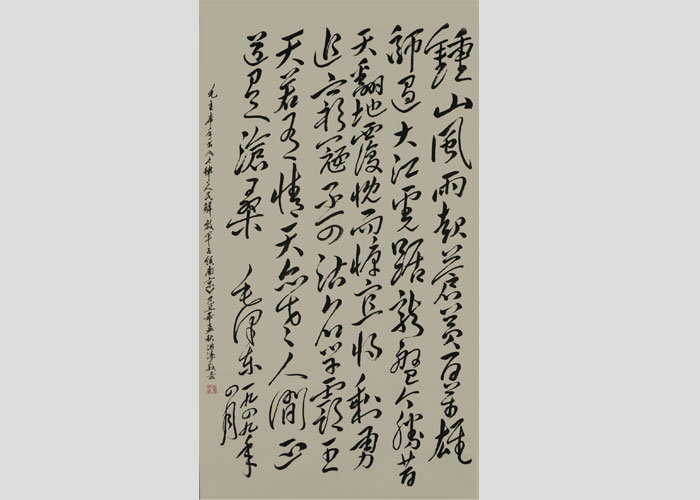 鍾山風雨起蒼黄百萬雄
師過大江虎踞龍盤今勝昔
天翻地覆慨而慷宜将剩勇
追穷寇不可沽名学霸王
天若有情天亦老人間正
道是滄桑 毛澤东 一九四九年
四月
毛主席七律人民解放軍占領南京 己丑年孟秋